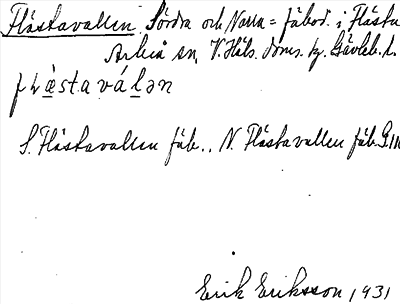 Flästavallen. Södra och Norra = fäbod. i Flästa
Arbrå sn, V. Häls. doms. hg. Gävleb. l.
S. Flästavallen fäb., N. Flästavallen fäb. G.m
Erik Eriksson 1931